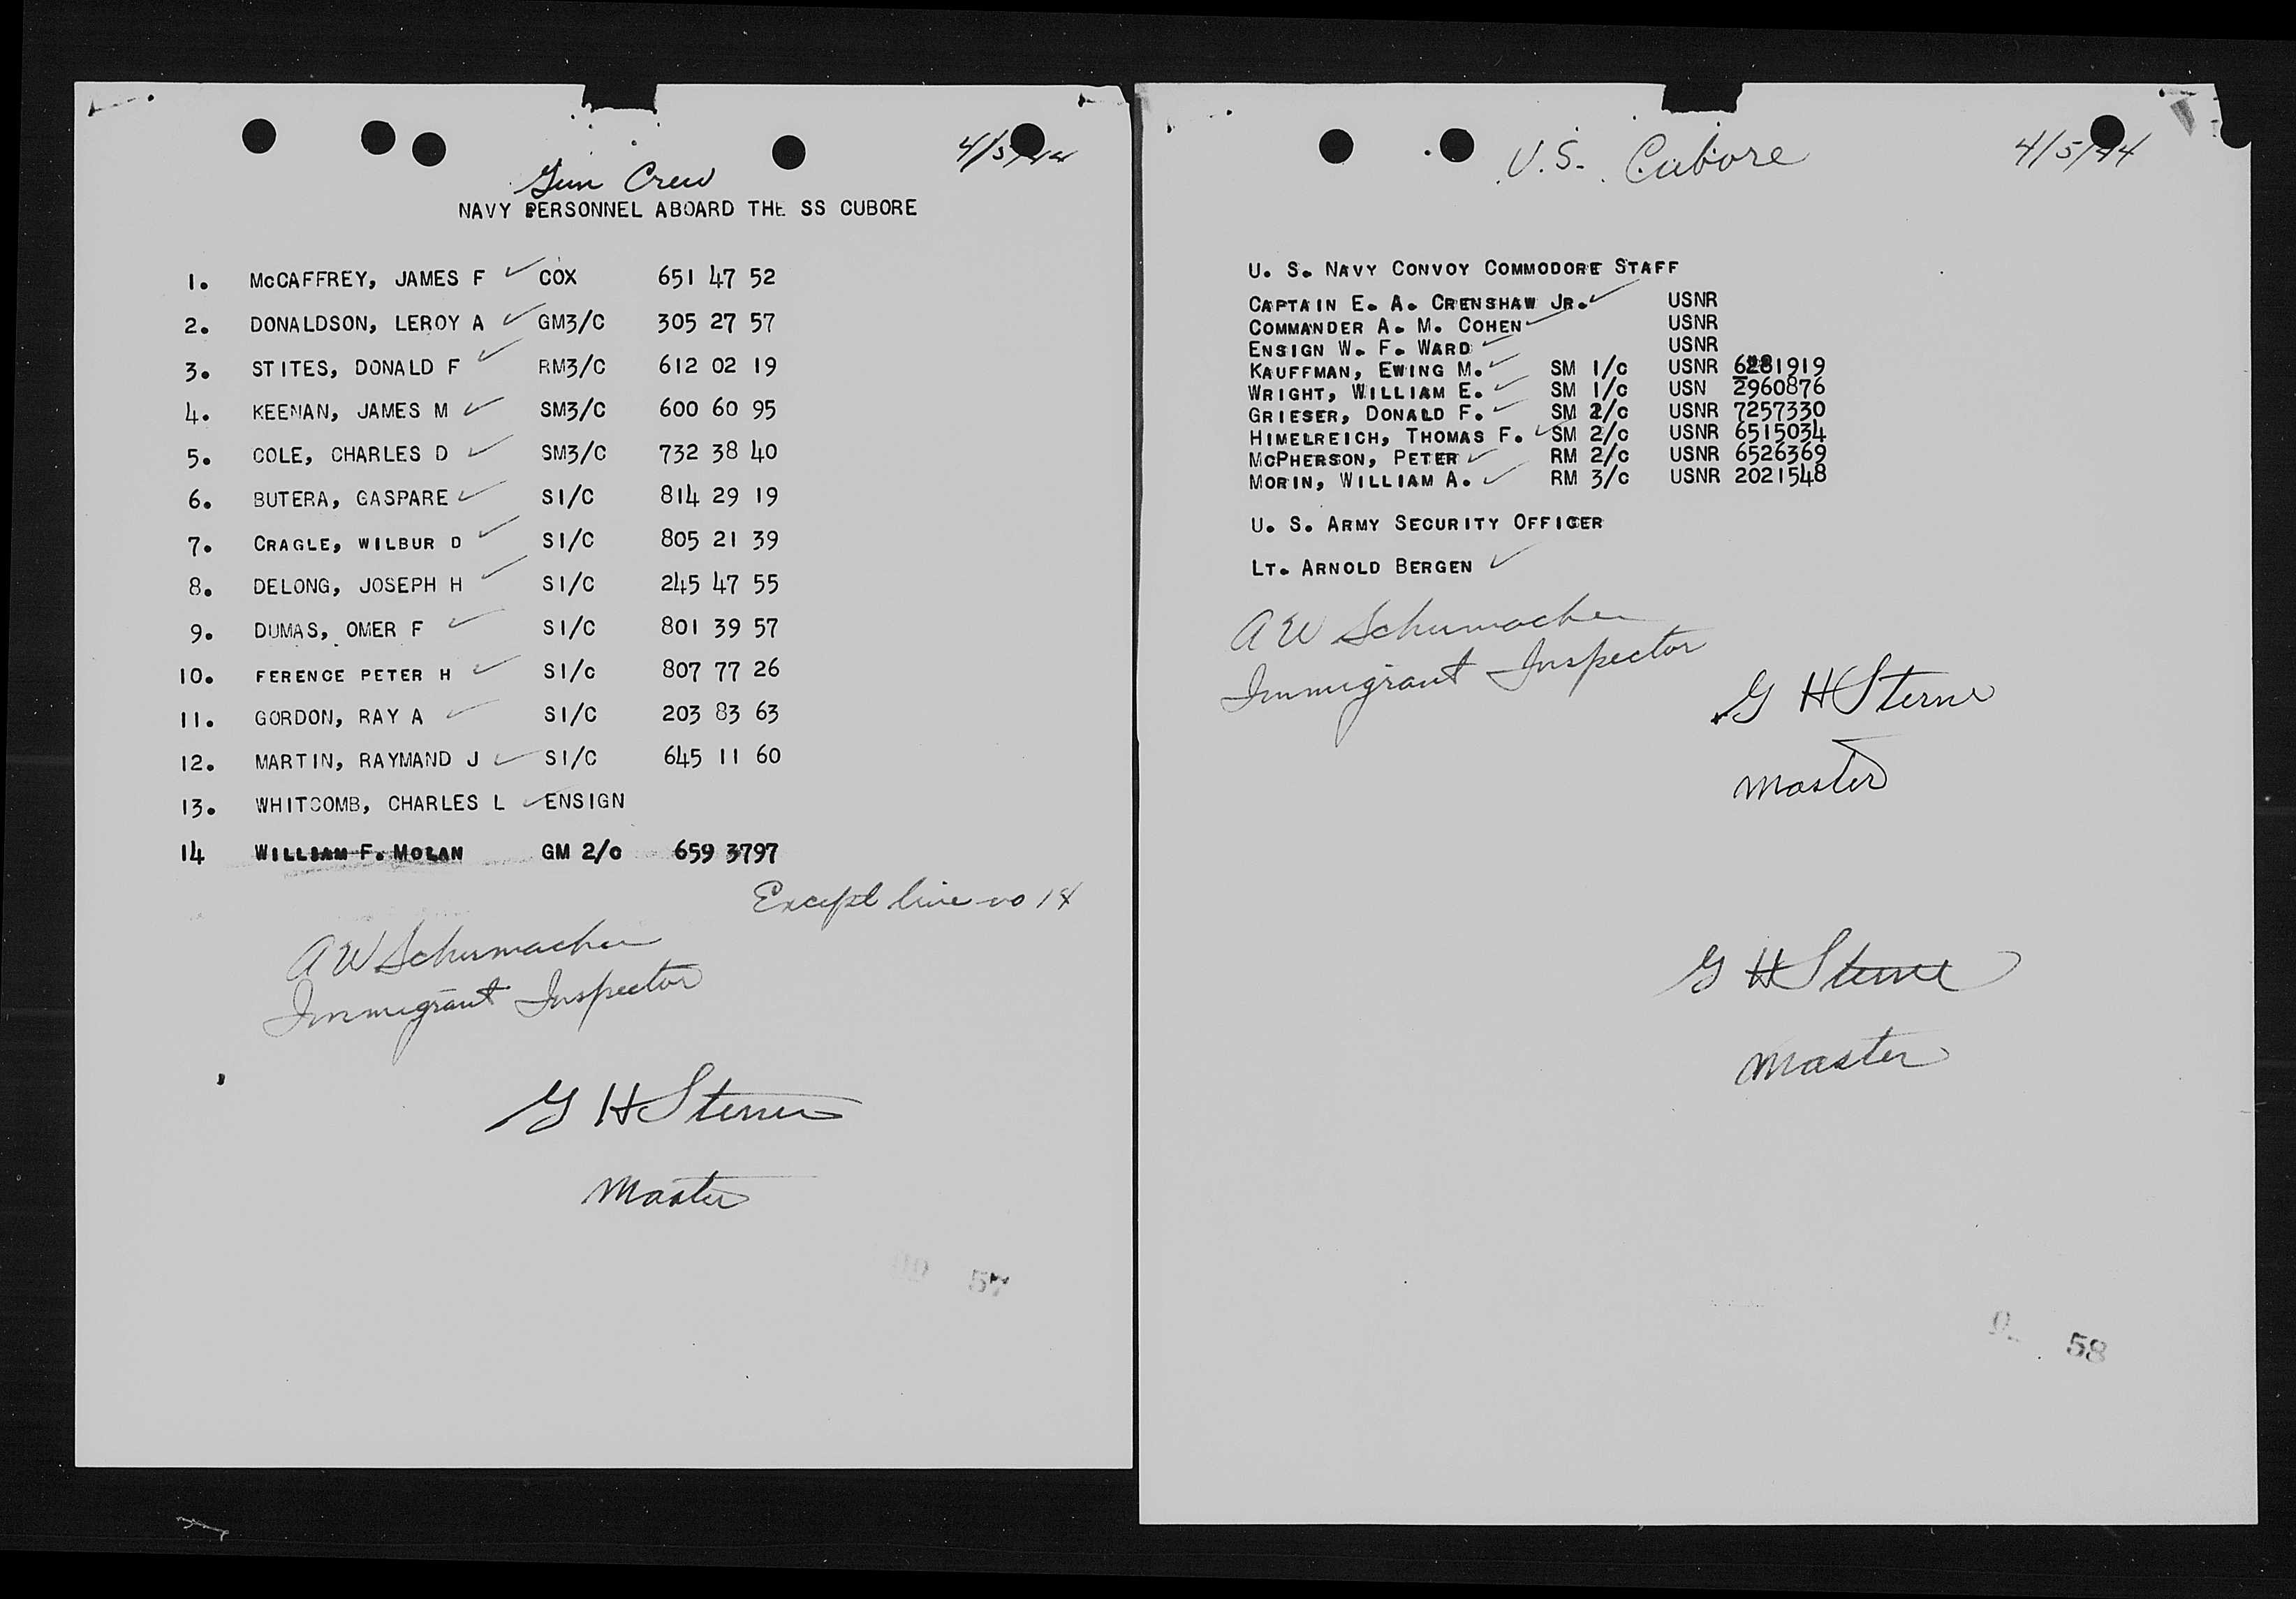 4/5/44
Gun Crew
NAVY PERSONNEL ABOARD THE SS CUBORE
1. McCAFFREY, JAMES F COX 651 47 52
2. DONALDSON, LEROY A GM3/C 305 27 57
3. STITES, DONALD F RM3/C 612 02 19
4. KEENAN, JAMES M SM3/C 600 60 95
5. COLE, CHARLES D SM3/C 732 38 40
6. BUTERA, GASPARE S1/C 814 29 19
7. CRAGLE, WILBUR D S1/C 805 21 39
8. DELONG, JOSEPH H S1/C 245 47 55
9. DUMAS, OMER F S1/C 801 39 57
10. FERENCE PETER H S1/C 807 77 26
11. GORDON, RAY A S1/C 203 83 63
12. MARTIN, RAYMAND J S1/C 645 11 60
13. WHITCOMB, CHARLES L ENSIGN
14 WILLIAM F. MOLAN GM 2/C 659 3797
Except line no 14
A W Schumacher
Immigrant Inspector
G H Sterne
Master
57
U.S. Cubore 4/5/44
U. S. NAVY CONVOY COMMODORE STAFF
CAPTAIN E. A. CRENSHAW JR. USNR
COMMANDER A. M. COHEN USNR
ENSIGN W. F. WARD USNR
KAUFFMAN, EWING M. SM 1/C USNR 6281919
WRIGHT, WILLIAM E. SM 1/C USN 2960876
GRIESER, DONALD F. SM 2/C USNR 7257330
HIMELREICH, THOMAS F. SM 2/C USNR 6515034
MCPHERSON, PETER RM 2/C USNR 6526369
MORIN, WILLIAM A. RM 3/C USNR 2021548
U. S. ARMY SECURITY OFFICER
LT. ARNOLD BERGEN
A W Schumacher
Immigrant Inspector
G H Sterne
Master
G H Sterne
Master
58